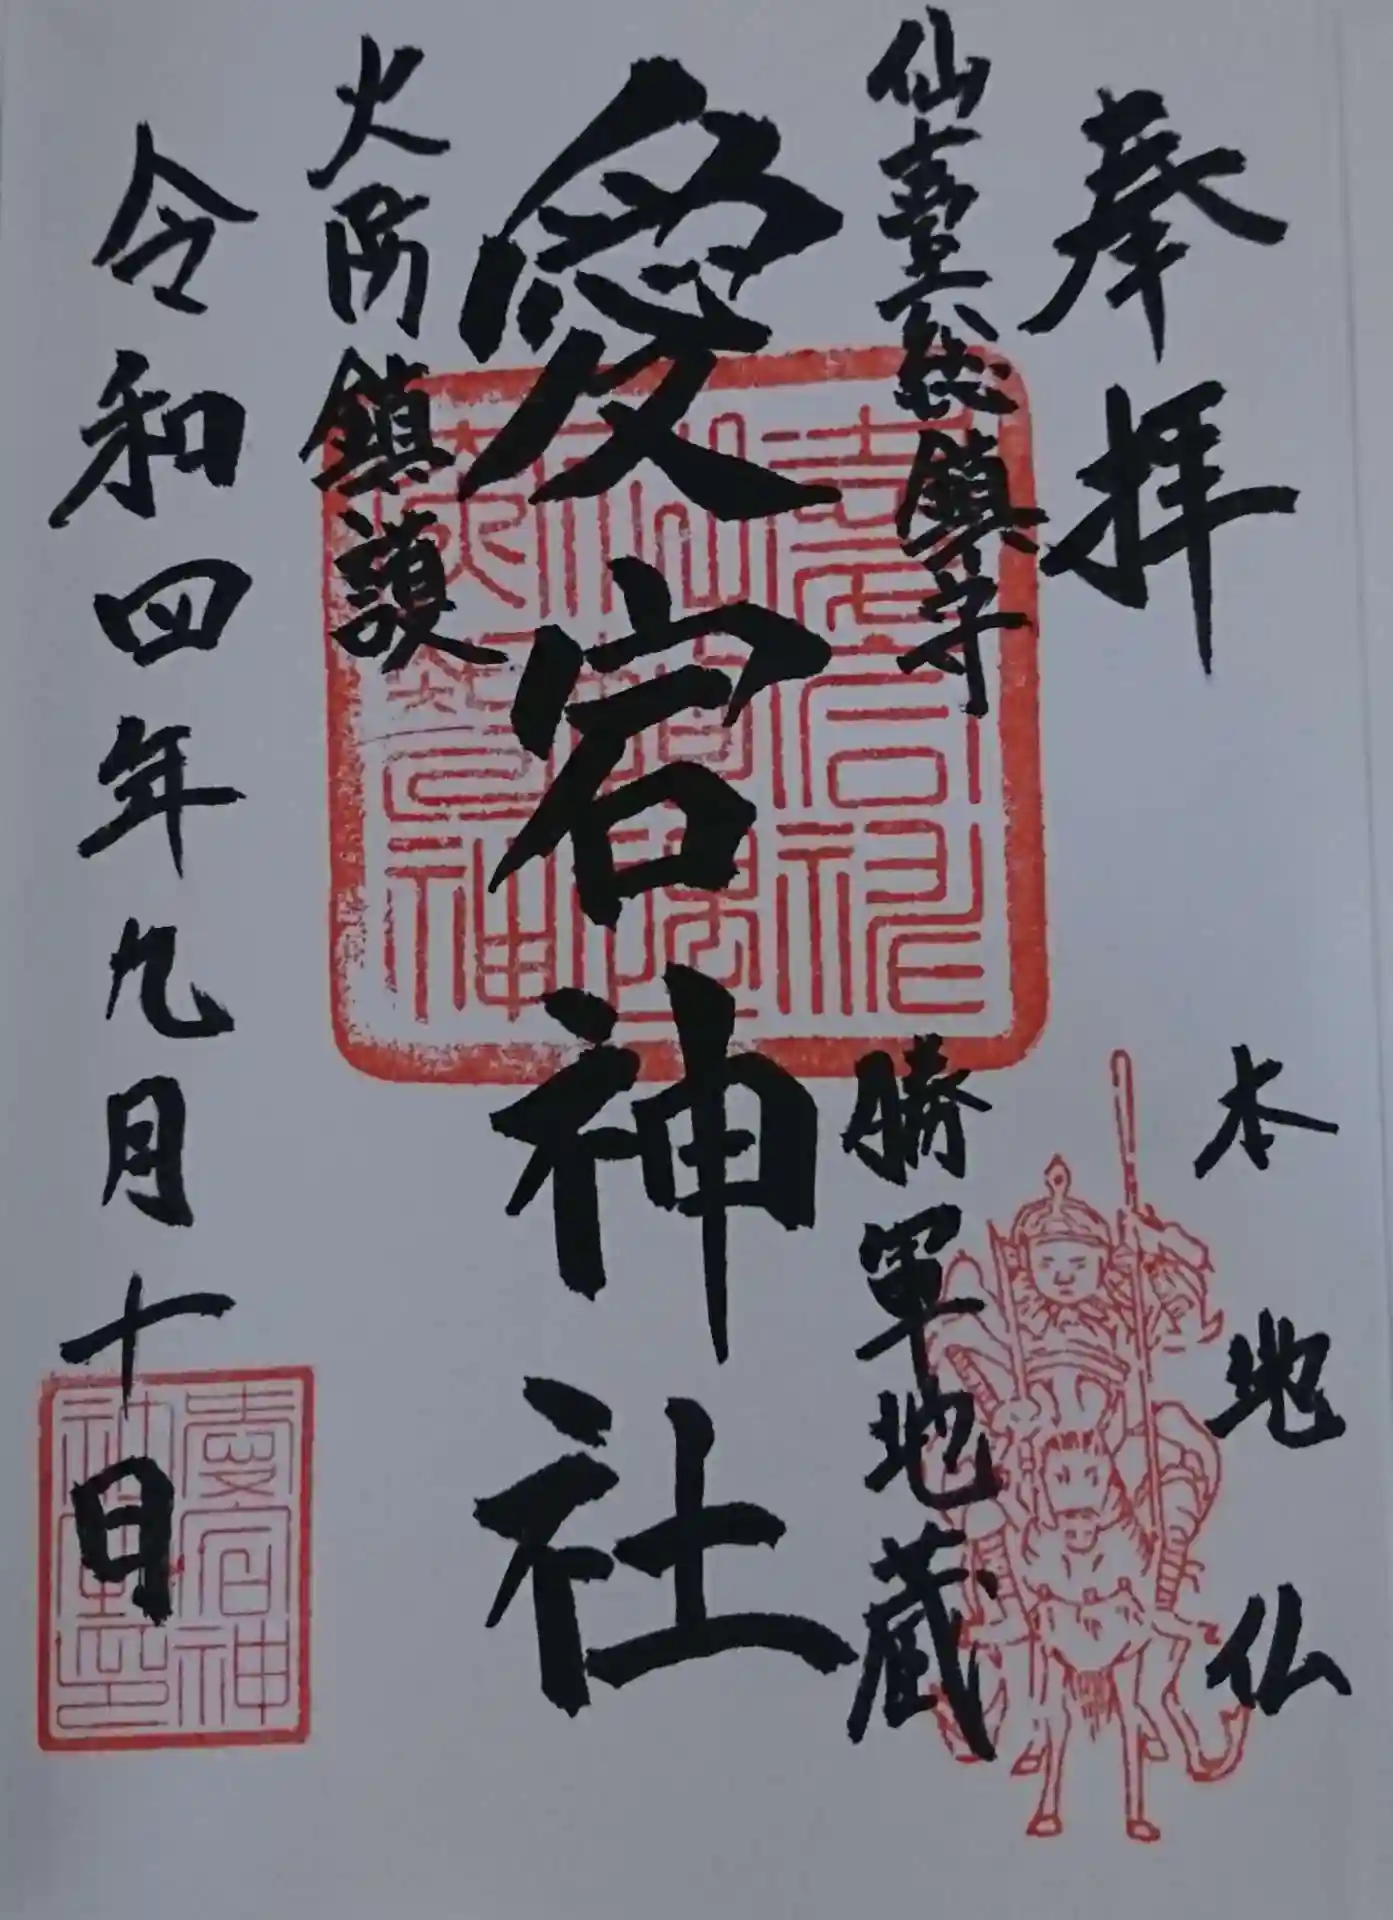 奉拝
本地仏
仙臺総鎮守
勝軍地蔵
愛宕神社
火防鎮護
令和四年九月十日
愛宕神